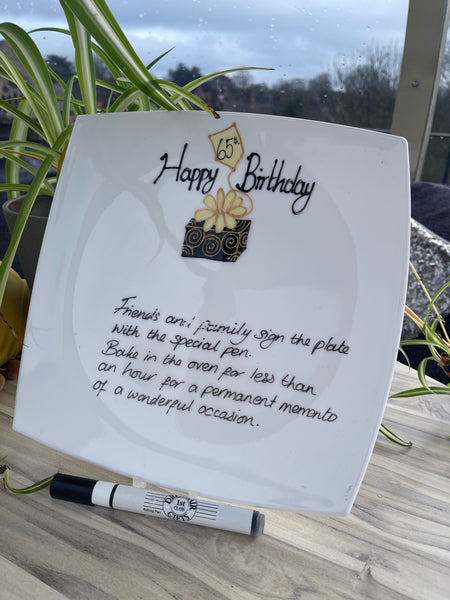 65th
Happy Birthday
Friends and family sign the plate
with the special pen.
Bake in the oven for less than
an hour for a permanent memento
of a wonderful occasion.
1st
CLASS
GIFTS